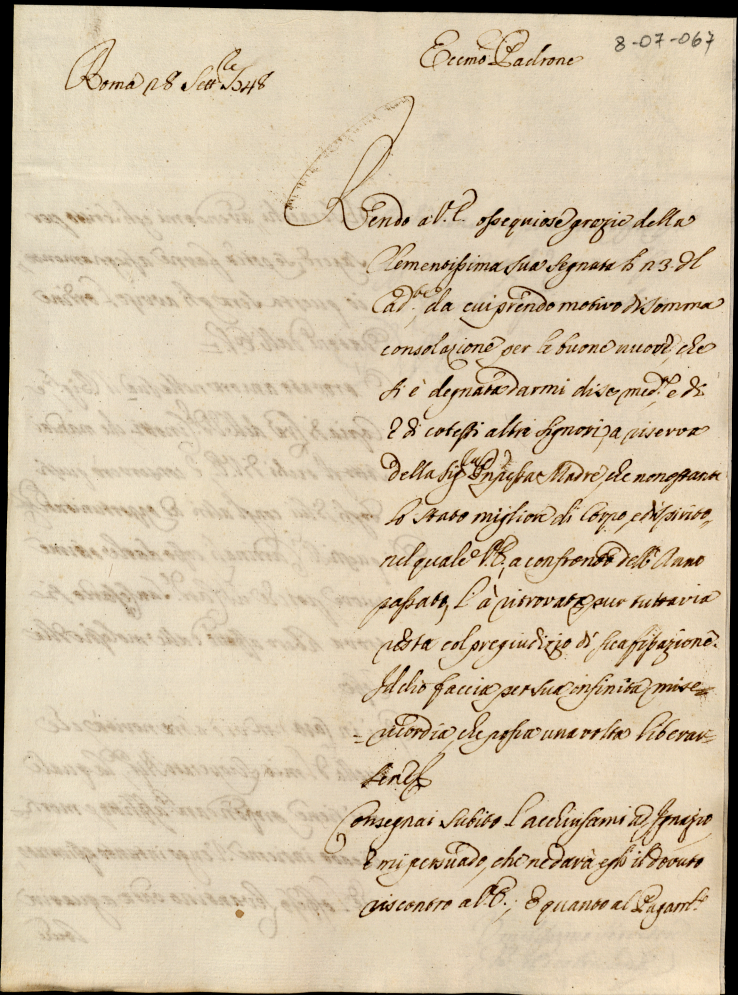 8-07-067
Eccmo Padrone
Roma 28 Settbre 1748
Rendo a V.E. ossequiose grazie della
Clementissima sua segnata li 23. del
cadte, da cui prendo motivo di somma
consolazione per le buone nuove, che
si è degnata darmi di se medma e di
E di cotesti altri Signori, a riserva
della Sigra Madre, che nonostante
lo stato migliore di Corpo, e di spirito,
nel quale V.E, a confronto dell'Anno
passato, l'à ritrovata, pur tuttavia
resta col pregiudizio di
Iddio faccia per sua infinita mise=
=ricordia, che possa una volta liberar=
sene
Consegnai subito l'acchiusami ad Ignazio
E mi persuado, che ne darà esso il dovuto
riscontro a V.E.; E quanto al Pagamto